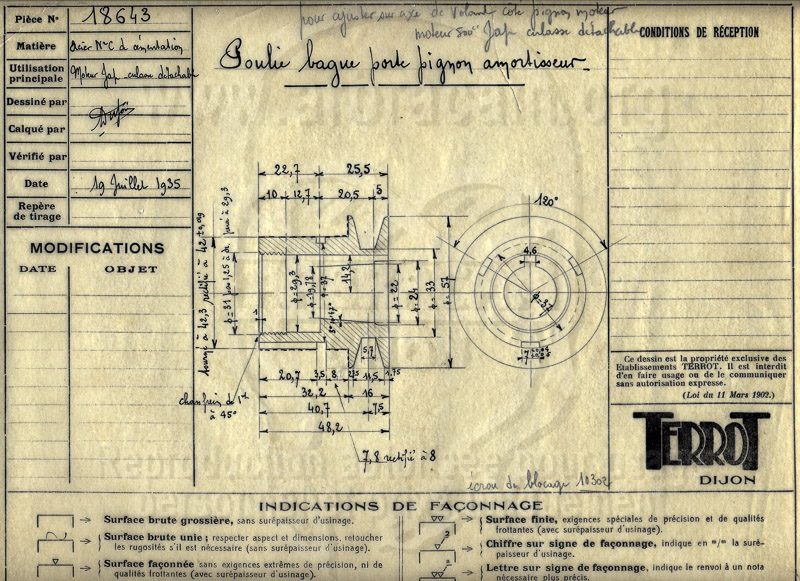 Pièce N° 18643
Matière Acier N°C d cémentation
Utilisation principale Moteur Jap culasse détachabl
Dessiné par
Calqué par
Vérifié par
Date 19 Juillet 1935
Repère de tirage
MODIFICATIONS
DATE OBJET
pour ajuster sur axe de Volant cote pignon moteur
moteur 500cc Jap culasse détachable
Poulie bague porte pignon amortisseur
CONDITIONS DE RÉCEPTION
22,7 25,5
10 12,7 20,5 5
120°
4,6
14,2
5,7
20,7 3,5 8 11,5 1,75
32,2 16
40,7 7,5
48,2
φ=22
φ=24
φ=33
φ=57
φ=37
φ=29,3
chanfrein de 1
à 45°
7,8 rectifié à 8
écrou de blocage 10302
Ce dessin est la propriété exclusive des
Etablissements TERROT. Il est interdit
d'en faire usage ou de le communiquer
sans autorisation expresse.
(Loi du 11 Mars 1902.)
TERROT
DIJON
INDICATIONS DE FAÇONNAGE
Surface brute grossière, sans surépaisseur d'usinage.
Surface brute unie ; respecter aspect et dimensions, retoucher
les rugosités s'il est nécessaire (sans surépaisseur d'usinage).
Surface façonnée sans exigences extrêmes de précision, ni de
qualités frottantes (avec surépaisseur d'usinage).
Surface finie, exigences spéciales de précision et de qualités
frottantes (avec surépaisseur d'usinage).
Chiffre sur signe de façonnage, indique en m/m la suré-
paisseur d'usinage.
Lettre sur signe de façonnage, indique le renvoi à un nota
nécessaire plus précis.